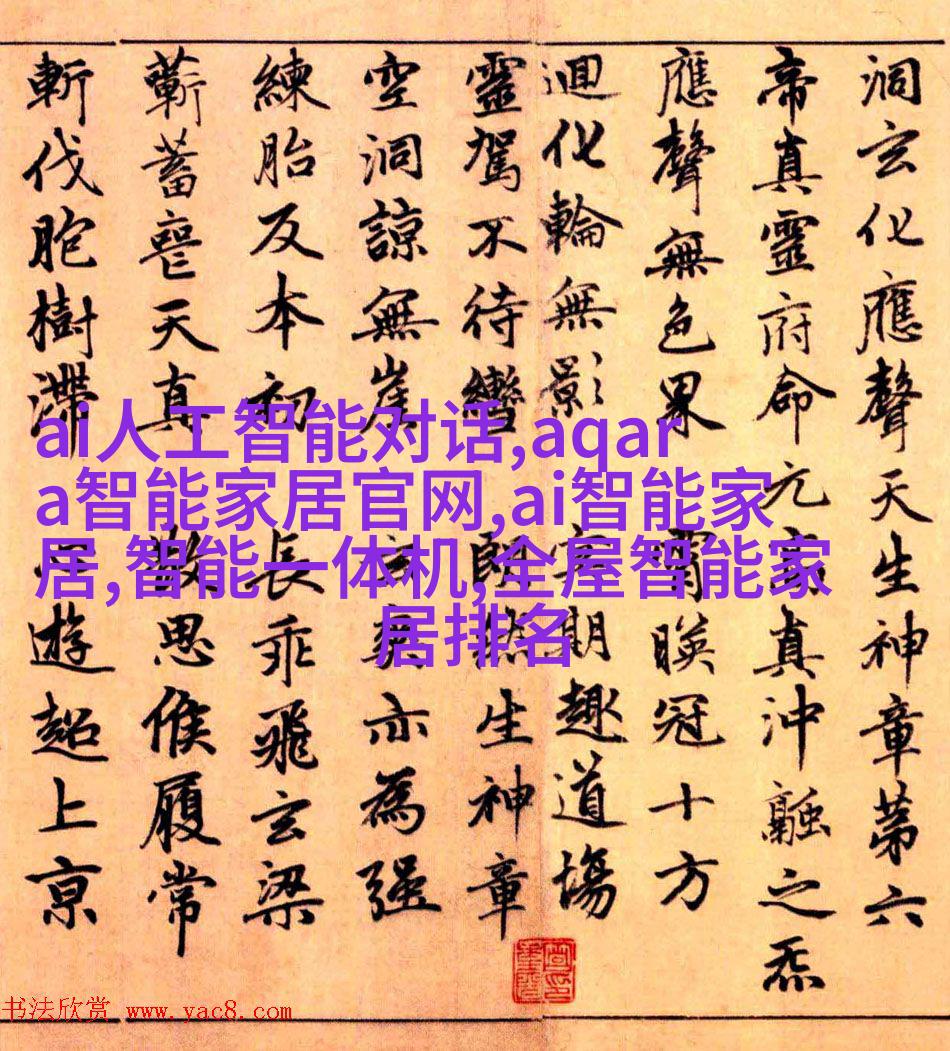 洞玄化應聲天生神章第六
帝真靈府命元真沖融之炁
應聲無色界 霄映冠十方
迴化輪無影 冥期趣道場
靈駕不待轡 朗然生神章
空洞諒無崖 玄爽亦為強
練胎反本初 長乖飛玄梁
蘄蓄喪天真 散思候履常
斬伐胞樹滯 遊超上京
ai人工智能对话,aqar
a智能家居官网,ai智能家
居,智能一体机,全屋智能家
居排名
书法欣赏 www.yac8.com